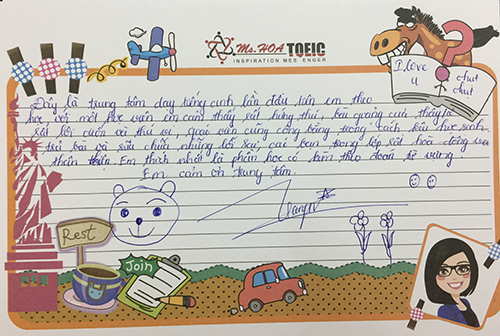 Ms. HOA TOEIC
INSPIRATION MES ENGER
I love
u
chut
chut
Đây là trung tâm dạy tiếng anh lần đầu tiên em theo
học với một học viên em cảm thấy rất hứng thú, bài giảng của thầy là
rất lôi cuốn và thú vị, giáo viên cũng công bằng trong cách kêu học sinh
trả bài và sửa chữa những lỗi sai, các bạn trong lớp rất hoà đồng và
thân thiện. Em thích nhất là phần học có kèm theo đoạn từ vựng.
Em cảm ơn trung tâm.
Rest
Join